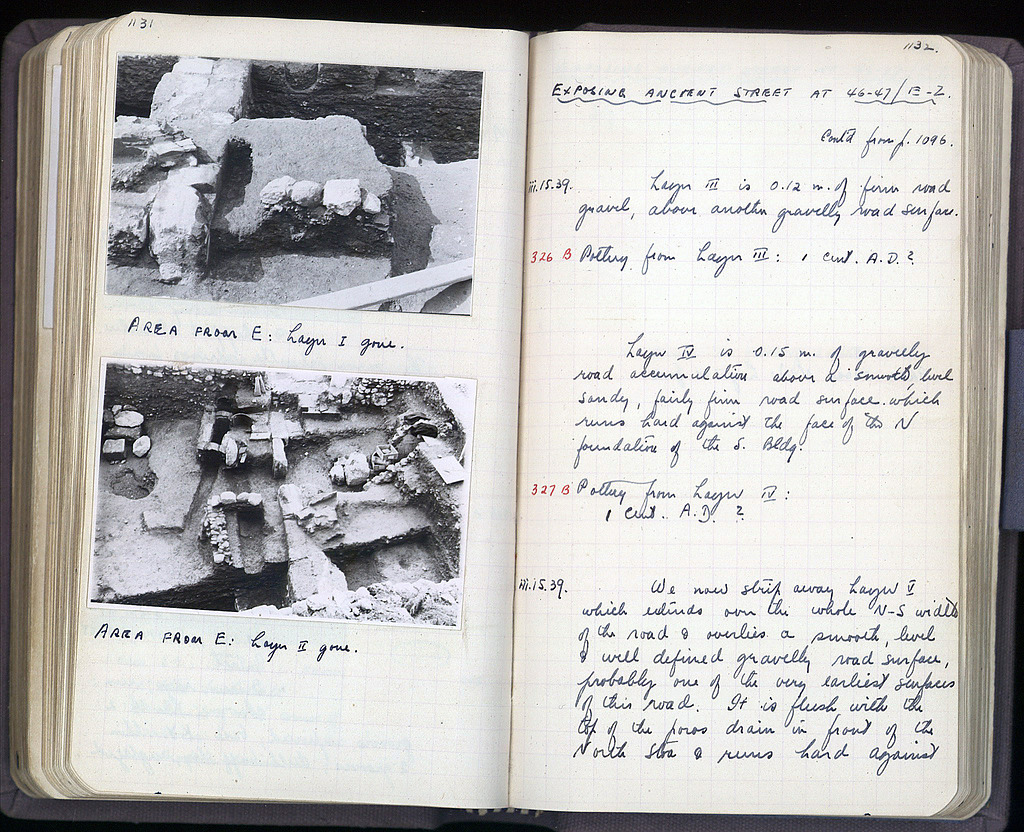 1131
AREA FROM E: Layer I gone.
AREA FROM E: Layer II gone.
1132.
EXPOSING ANCIENT STREET AT 46-47/E-Z.
Cont'd from p. 1096.
iii.15.39. Layer III is 0.12 m. of firm road
gravel, above another gravelly road surface.
326 B Pottery from Layer III: 1 cent. A.D.?
Layer IV is 0.15 m. of gravelly
road accumulation above a smooth, level
sandy, fairly firm road surface which
runs hard against the face of the N
foundation of the S. Bldg.
327 B Pottery from Layer IV:
1 cent. A.D. ?
iii.15.39. We now strip away Layer V
which extends over the whole N-S width
of the road & overlies a smooth, level
& well defined gravelly road surface,
probably one of the very earliest surfaces
of this road. It is flush with the
top of the poros drain in front of the
North Stoa & runs hard against